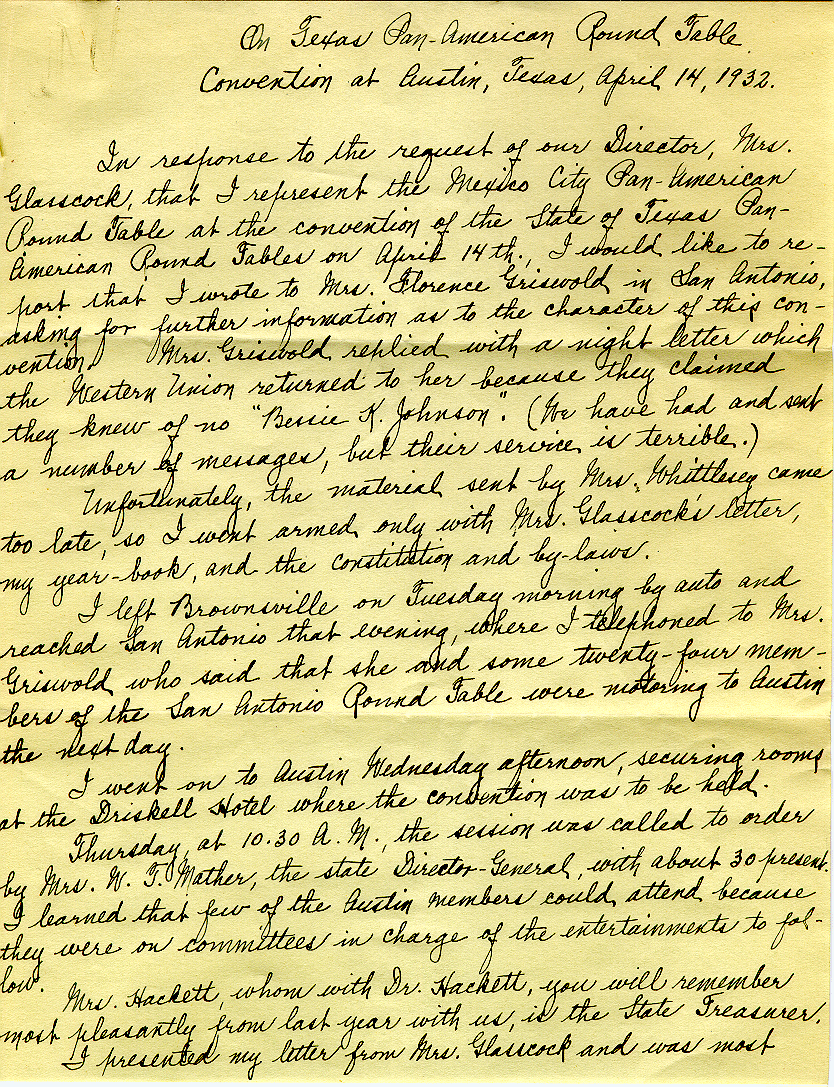 On Texas Pan-American Round Table
Convention at Austin, Texas, April 14, 1932.
In response to the request of our Director, Mrs.
Glasscock, that I represent the Mexico City Pan-American
Round Table at the convention of the State of Texas Pan-
American Round Tables on April 14th., I would like to re-
port that I wrote to Mrs. Florence Griswold in San Antonio,
asking for further information as to the character of this con-
vention. Mrs. Griswold replied with a night letter which
the Western Union returned to her because they claimed
they knew of no "Bessie K. Johnson". (We have had and sent
a number of messages, but their service is terrible.)
Unfortunately, the material sent by Mrs. Whittlesey came
too late, so I went armed only with Mrs. Glasscock's letter,
my year-book, and the constitution and by-laws.
I left Brownsville on Tuesday morning by auto and
reached San Antonio that evening, where I telephoned to Mrs.
Griswold who said that she and some twenty-four mem-
bers of the San Antonio Round Table were motoring to Austin
the next day.
I went on to Austin Wednesday afternoon, securing rooms
at the Driskell Hotel where the convention was to be held.
Thursday, at 10.30 A.M., the session was called to order
by Mrs. W. T. Mather, the state Director-General, with about 30 present.
I learned that few of the Austin members could attend because
they were on committees in charge of the entertainments to fol-
low.
Mrs. Hackett, whom with Dr. Hackett, you will remember
most pleasantly from last year with us, is the State Treasurer.
I presented my letter from Mrs. Glasscock and was most